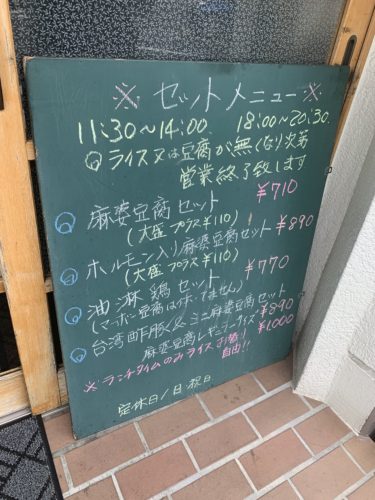 ※ セットメニュー ※
11:30〜14:00 18:00〜20:30
◎ライス又は豆腐が無くなり次第
営業終了致します
麻婆豆腐セット ¥710
(大盛プラス¥110)
ホルモン入り麻婆豆腐セット ¥890
(大盛プラス¥110)
油淋鶏セット ¥770
(マーボー豆腐は付いてません)
台湾酢豚&ミニ麻婆豆腐セット ¥890
麻婆豆腐レギュラーサイズ ¥1000
※ランチタイムのみライスお替り
自由!!
定休日/日.祝日